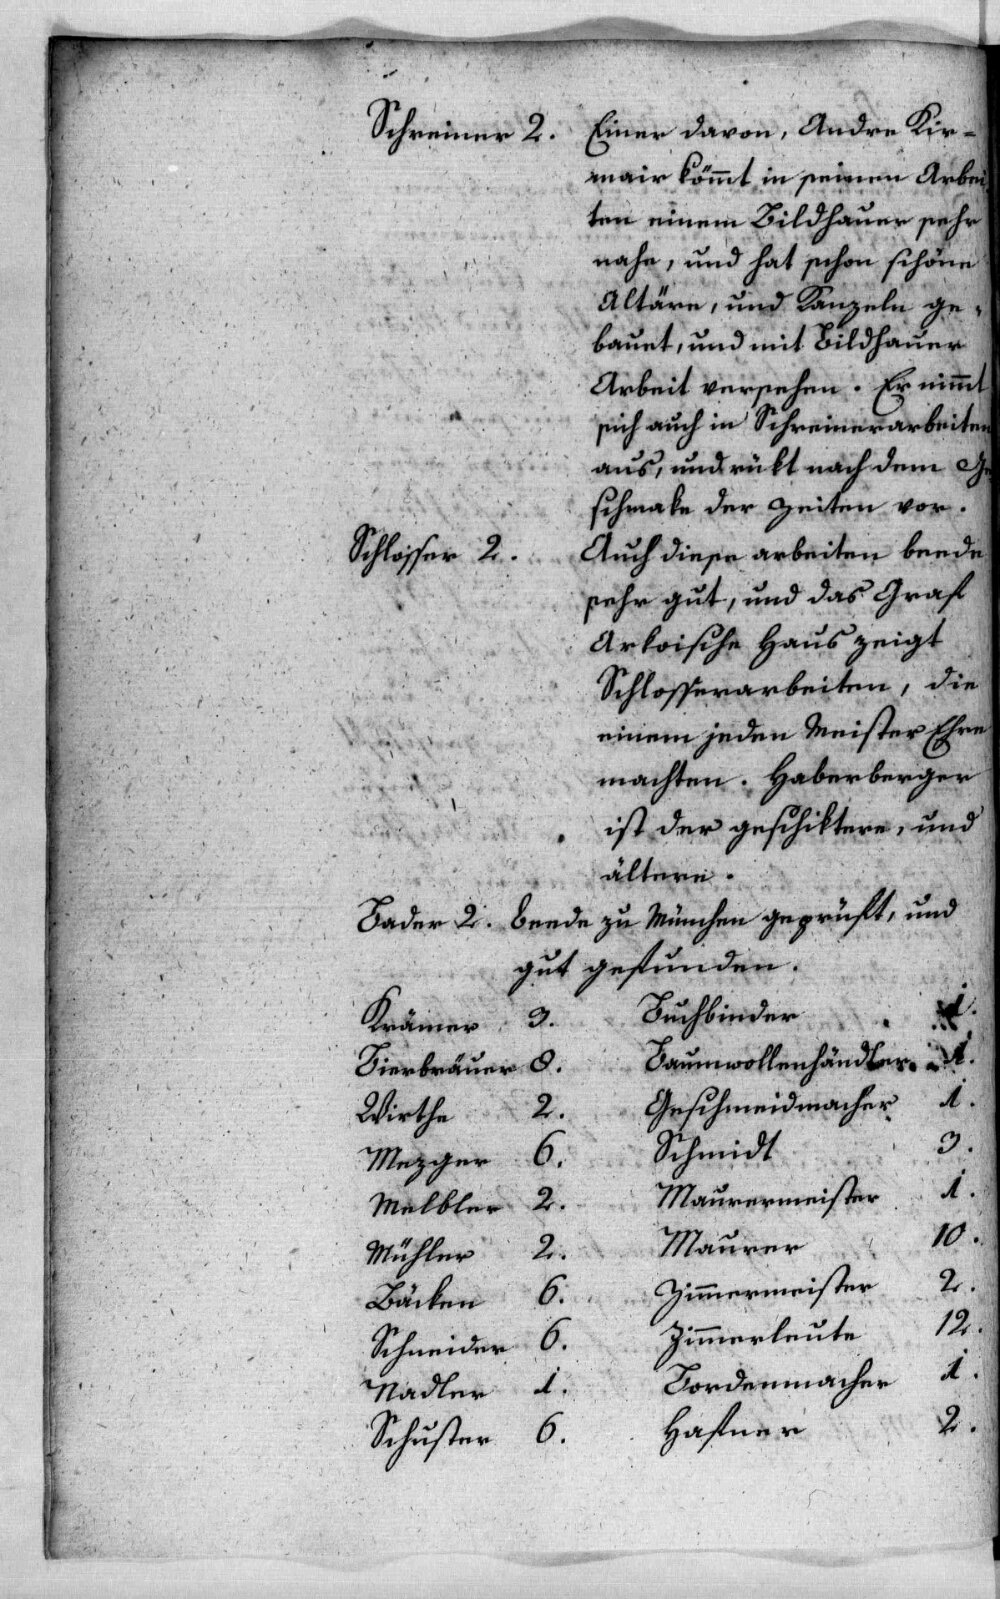 Schreiner 2. Einer davon, Andre Kir-
mair kömmt in seinen Arbei
ten einem Bildhauer sehr
nahe, und hat schon schöne
Altäre, und Kanzeln ge-
bauet, und mit Bildhauer
Arbeit versehen. Er nimmt
sich auch in Schreinerarbeiten
aus, und rükt nach dem Ge
schmake der Zeiten vor.
Schlosser 2. Auch diese arbeiten beede
sehr gut, und das Graf
Arkoische Haus zeigt
Schlosserarbeiten, die
einem jeden Meister Ehre
machten. Haberberger
ist der geschiktere, und
ältere.
Bader 2. beede zu München geprüft, und
gut gefunden.
Krämer 3. Buchbinder 1.
Bierbräuer 8. Baumwollenhändler 1.
Wirthe 2. Geschmeidmacher 1.
Mezger 6. Schmidt 3.
Melbler 2. Maurermeister 1.
Mühler 2. Maurer 10.
Bäcken 6. Zimmermeister 2.
Schneider 6. Zimmerleute 12.
Nadler 1. Bordenmacher 1.
Schuster 6. Hafner 2.